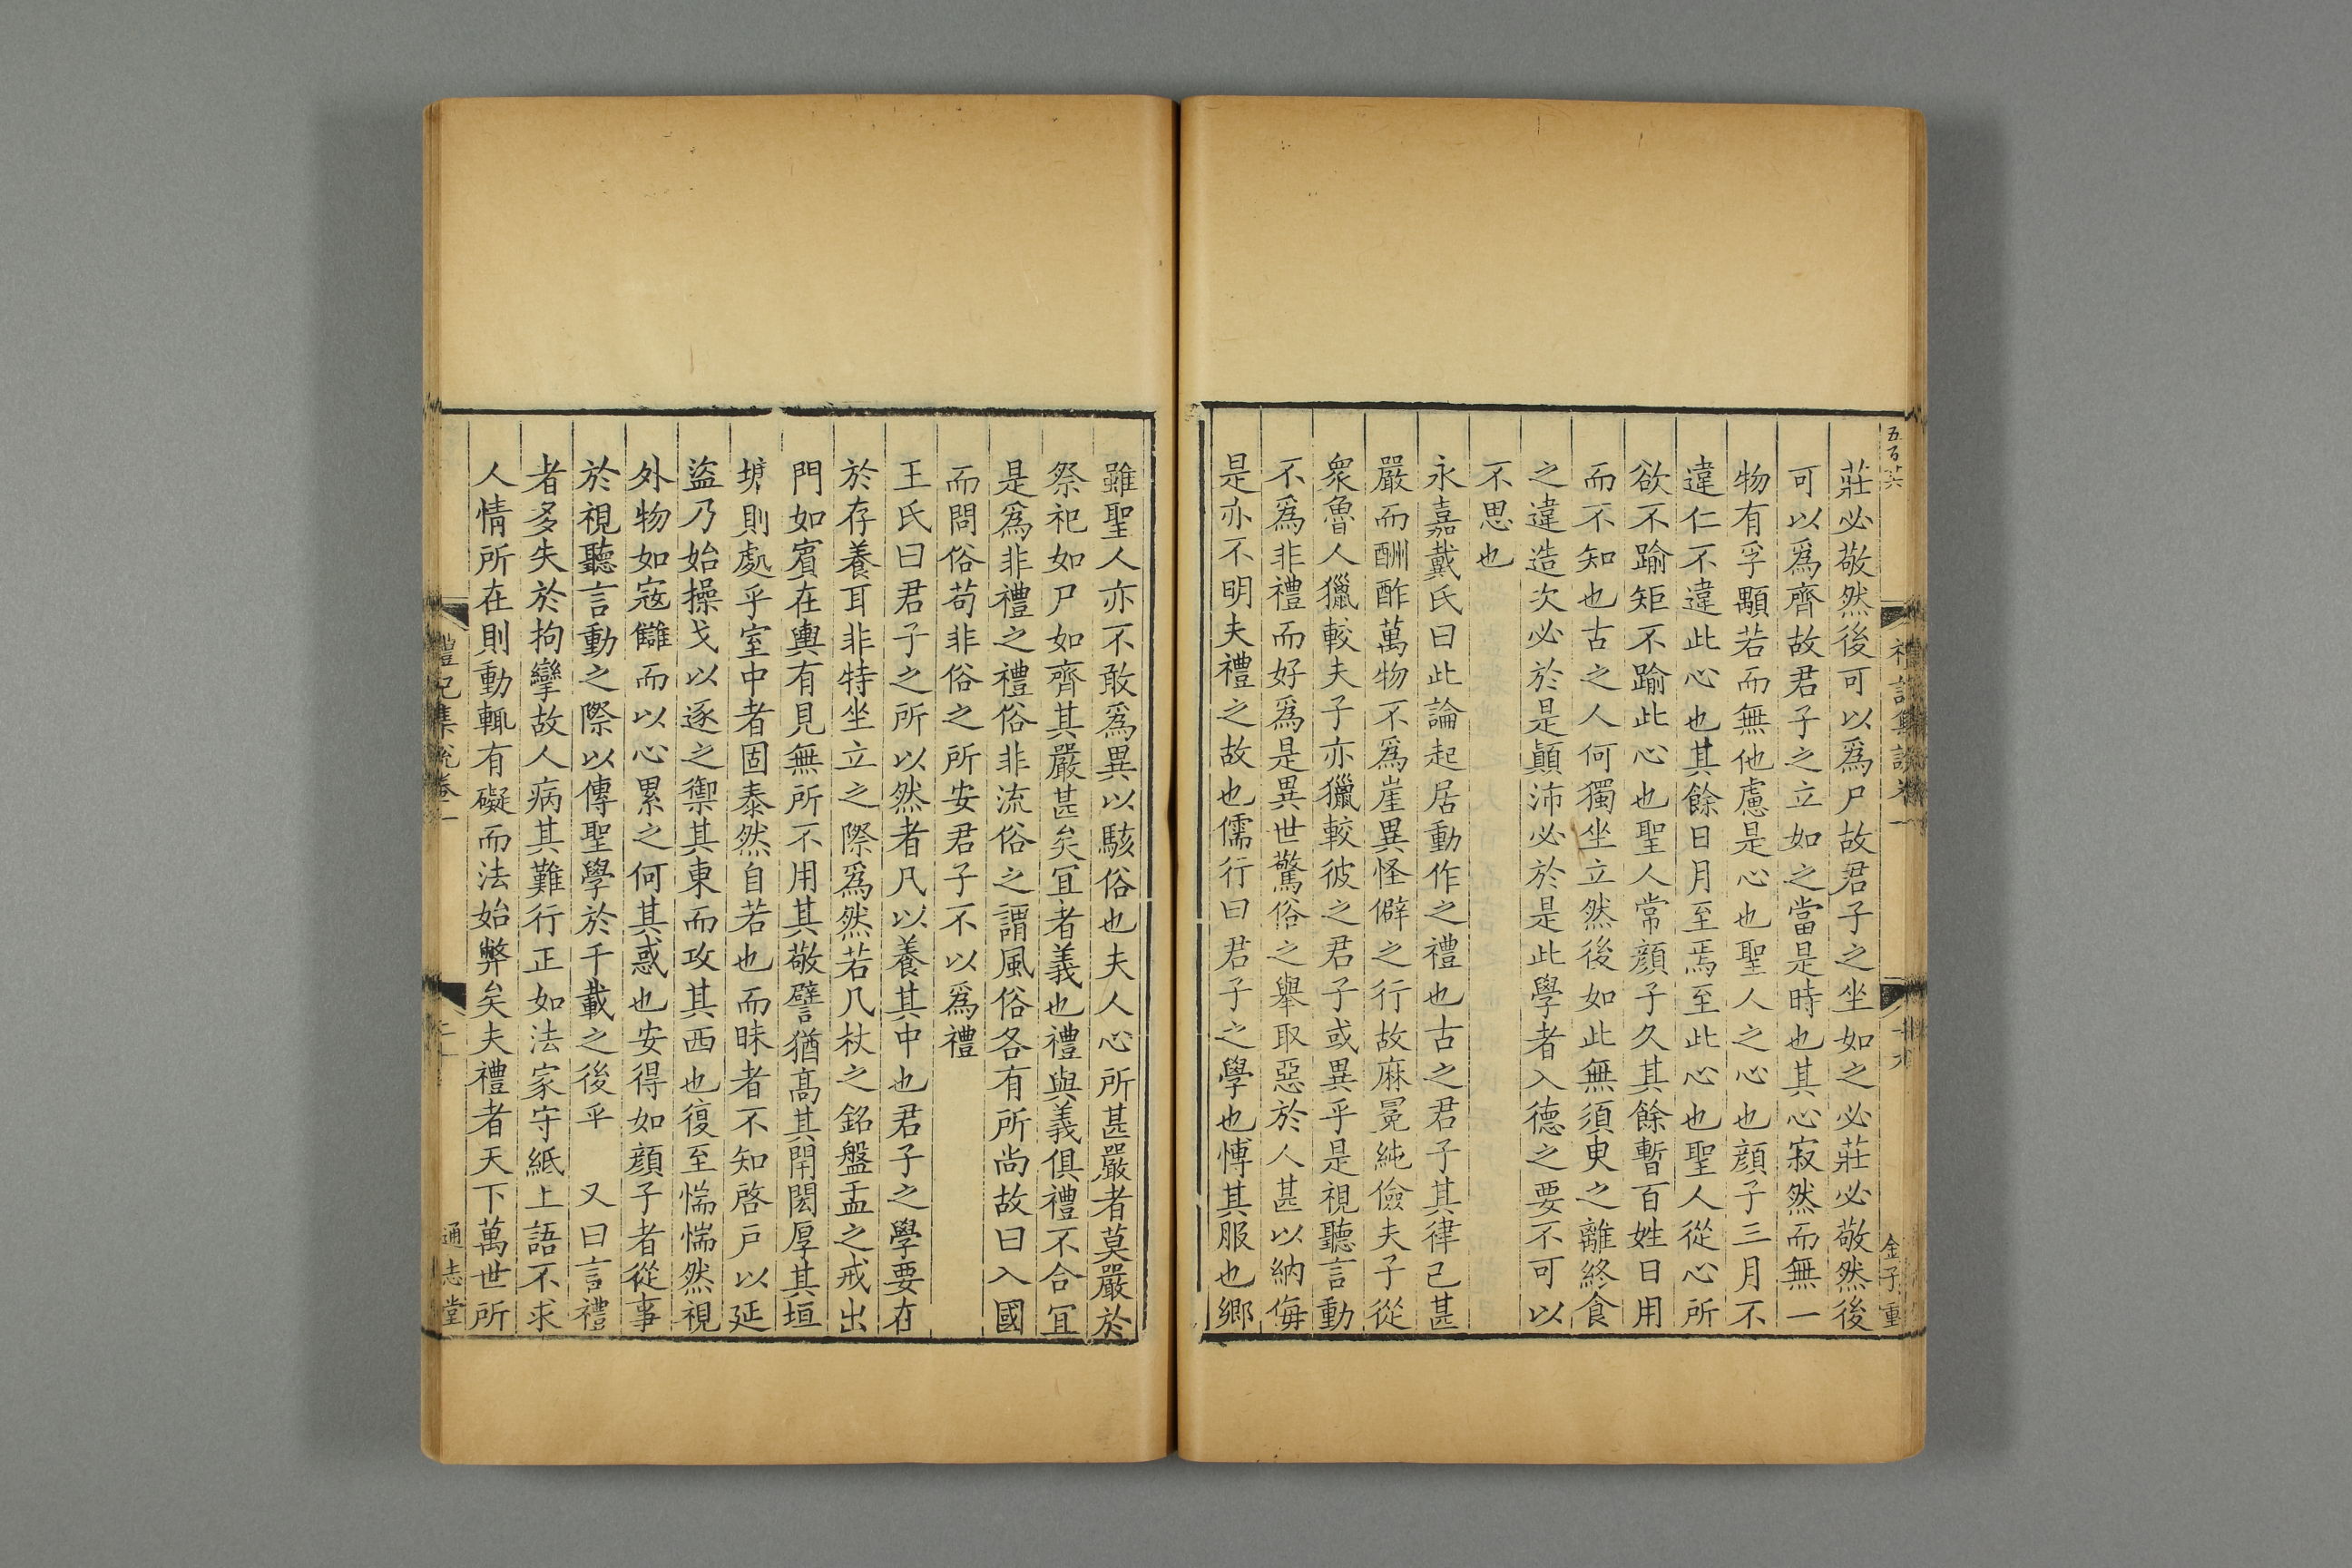 五百廿六
禮記集說卷一
十九
金子重
莊必敬然後可以爲尸故君子之坐如之必莊必敬然後
可以爲齊故君子之立如之當是時也其心寂然而無一
物有孚顒若而無他慮是心也聖人之心也顔子三月不
違仁不違此心也其餘日月至焉至此心也聖人從心所
欲不踰矩不踰此心也聖人常顔子久其餘暫百姓日用
而不知也古之人何獨坐立然後如此無須臾之離終食
之違造次必於是顚沛必於是此學者入德之要不可以
不思也
永嘉戴氏曰此論起居動作之禮也古之君子其律己甚
嚴而酬酢萬物不爲崖異怪僻之行故麻冕純儉夫子從
衆魯人獵較夫子亦獵較彼之君子或異乎是視聽言動
不爲非禮而好爲是異世驚俗之舉取惡於人甚以納侮
是亦不明夫禮之故也儒行曰君子之學也博其服也鄉
雖聖人亦不敢爲異以駭俗也夫人心所甚嚴者莫嚴於
祭祀如尸如齊其嚴甚矣宜者義也禮與義俱禮不合宜
是爲非禮之禮俗非流俗之謂風俗各有所尚故曰入國
而問俗苟非俗之所安君子不以爲禮
王氏曰君子之所以然者凡以養其中也君子之學要在
於存養耳非特坐立之際爲然若几杖之銘盤盂之戒出
門如賓在輿有見無所不用其敬譬猶高其閈閎厚其垣
墉則處乎室中者固泰然自若也而昧者不知啓戶以延
盜乃始操戈以逐之禦其東而攻其西也復至惴惴然視
外物如寇讎而以心累之何其惑也安得如顔子者從事
於視聽言動之際以傳聖學於千載之後乎　又曰言禮
者多失於拘攣故人病其難行正如法家守紙上語不求
人情所在則動輒有礙而法始弊矣夫禮者天下萬世所
禮記集說卷一
二十
通志堂